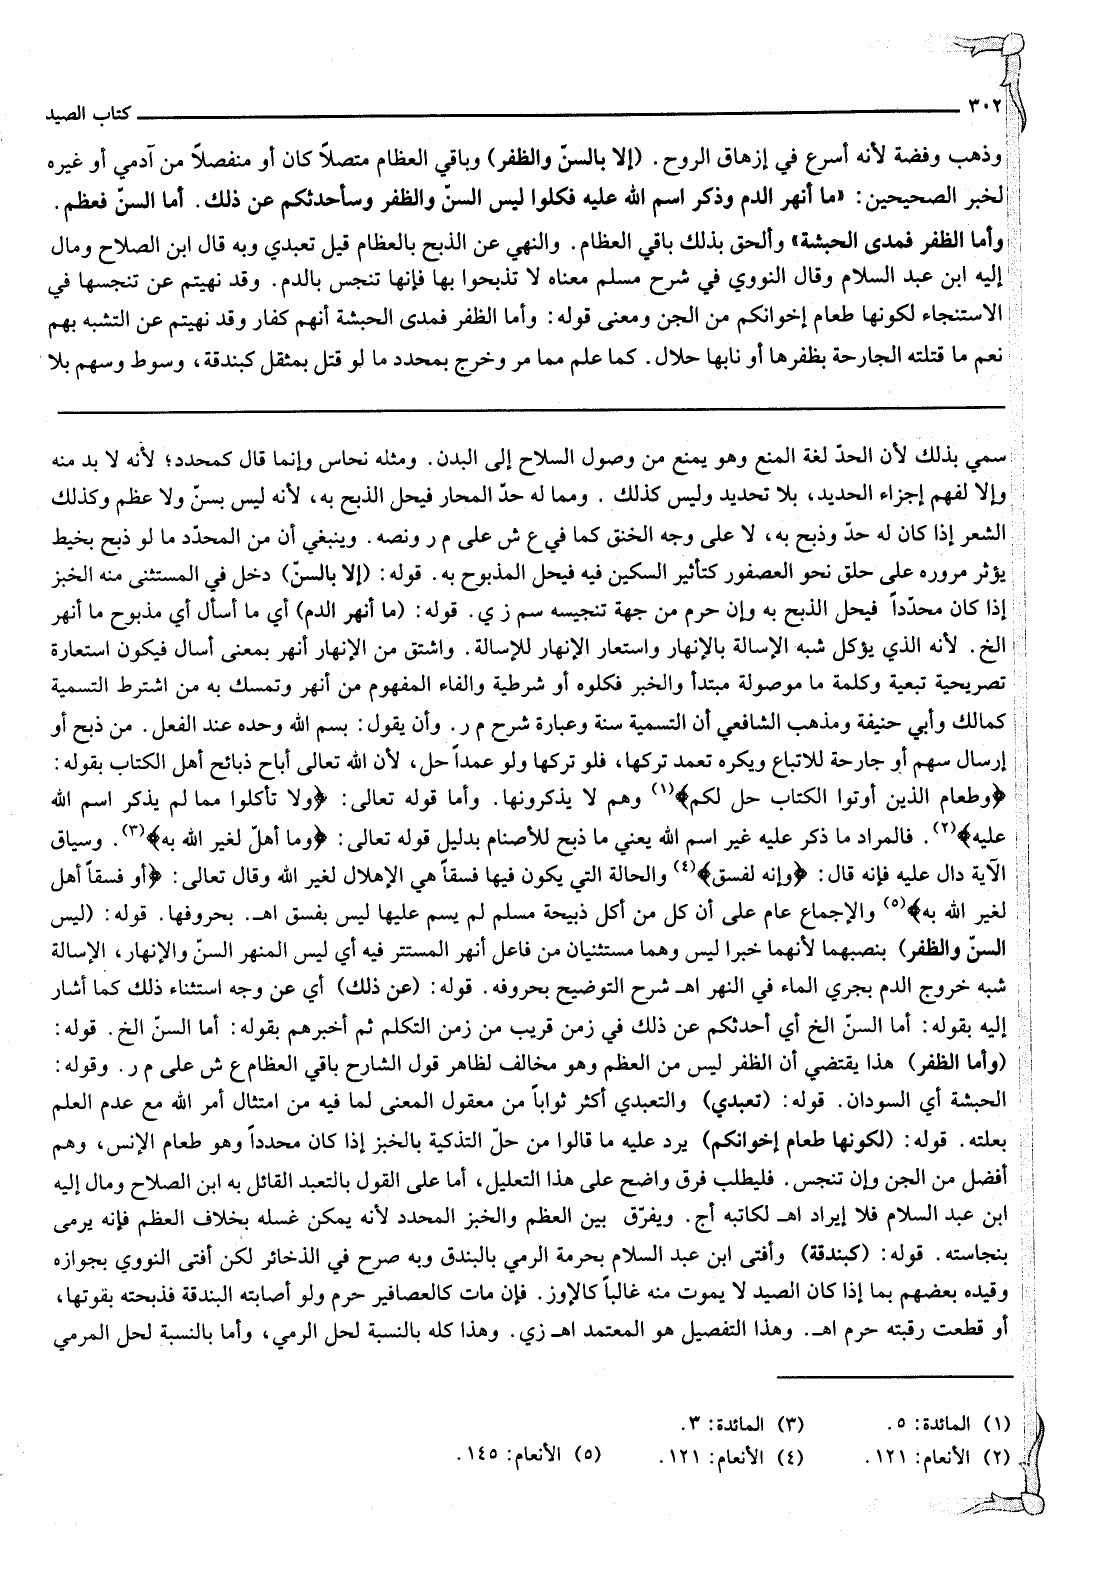 ٣٠٢ كتاب الصيد
وذهب وفضة لأنه أسرع في إزهاق الروح. (إلا بالسنّ والظفر) وباقي العظام متصلاً كان أو منفصلاً من آدمي أو غيره
لخبر الصحيحين: «ما أنهر الدم وذكر اسم الله عليه فكلوا ليس السنّ والظفر وسأحدثكم عن ذلك. أما السنّ فعظم.
وأما الظفر فمدى الحبشة» وألحق بذلك باقي العظام. والنهي عن الذبح بالعظام قيل تعبدي وبه قال ابن الصلاح ومال
إليه ابن عبد السلام وقال النووي في شرح مسلم معناه لا تذبحوا بها فإنها تنجس بالدم. وقد نهيتم عن تنجسها في
الاستنجاء لكونها طعام إخوانكم من الجن ومعنى قوله: وأما الظفر فمدى الحبشة أنهم كفار وقد نهيتم عن التشبه بهم
نعم ما قتلته الجارحة بظفرها أو نابها حلال. كما علم مما مر وخرج بمحدد ما لو قتل بمثقل كبندقة، وسوط وسهم بلا
سمي بذلك لأن الحدّ لغة المنع وهو يمنع من وصول السلاح إلى البدن. ومثله نحاس وإنما قال كمحدد؛ لأنه لا بد منه
وإلا لفهم إجزاء الحديد، بلا تحديد وليس كذلك. ومما له حدّ المحار فيحل الذبح به، لأنه ليس بسنّ ولا عظم وكذلك
الشعر إذا كان له حدّ وذبح به، لا على وجه الخنق كما في ع ش على م ر ونصه. وينبغي أن من المحدّد ما لو ذبح بخيط
يؤثر مروره على حلق نحو العصفور كتأثير السكين فيه فيحل المذبوح به. قوله: (إلا بالسنّ) دخل في المستثنى منه الخبز
إذا كان محدّداً فيحل الذبح به وإن حرم من جهة تنجيسه سم ز ي. قوله: (ما أنهر الدم) أي ما أسأل أي مذبوح ما أنهر
الخ. لأنه الذي يؤكل شبه الإسالة بالإنهار واستعار الإنهار للإسالة. واشتق من الإنهار أنهر بمعنى أسال فيكون استعارة
تصريحية تبعية وكلمة ما موصولة مبتدأ والخبر فكلوه أو شرطية والفاء المفهوم من أنهر وتمسك به من اشترط التسمية
كمالك وأبي حنيفة ومذهب الشافعي أن التسمية سنة وعبارة شرح م ر. وأن يقول: بسم الله وحده عند الفعل. من ذبح أو
إرسال سهم أو جارحة للاتباع ويكره تعمد تركها، فلو تركها ولو عمداً حل، لأن الله تعالى أباح ذبائح أهل الكتاب بقوله:
﴿وطعام الذين أوتوا الكتاب حل لكم﴾(١) وهم لا يذكرونها. وأما قوله تعالى: ﴿ولا تأكلوا مما لم يذكر اسم الله
عليه﴾(٢). فالمراد ما ذكر عليه غير اسم الله يعني ما ذبح للأصنام بدليل قوله تعالى: ﴿وما أهلّ لغير الله به﴾(٣). وسياق
الآية دال عليه فإنه قال: ﴿وإنه لفسق﴾(٤) والحالة التي يكون فيها فسقاً هي الإهلال لغير الله وقال تعالى: ﴿أو فسقاً أهل
لغير الله به﴾(٥) والإجماع عام على أن كل من أكل ذبيحة مسلم لم يسم عليها ليس بفسق اهـ. بحروفها. قوله: (ليس
السنّ والظفر) بنصبهما لأنهما خبرا ليس وهما مستثنيان من فاعل أنهر المستتر فيه أي ليس المنهر السنّ والإنهار، الإسالة
شبه خروج الدم بجري الماء في النهر اهـ شرح التوضيح بحروفه. قوله: (عن ذلك) أي عن وجه استثناء ذلك كما أشار
إليه بقوله: أما السنّ الخ أي أحدثكم عن ذلك في زمن قريب من زمن التكلم ثم أخبرهم بقوله: أما السنّ الخ. قوله:
(وأما الظفر) هذا يقتضي أن الظفر ليس من العظم وهو مخالف لظاهر قول الشارح باقي العظام ع ش على م ر. وقوله:
الحبشة أي السودان. قوله: (تعبدي) والتعبدي أكثر ثواباً من معقول المعنى لما فيه من امتثال أمر الله مع عدم العلم
بعلته. قوله: (لكونها طعام إخوانكم) يرد عليه ما قالوا من حلّ التذكية بالخبز إذا كان محدداً وهو طعام الإنس، وهم
أفضل من الجن وإن تنجس. فليطلب فرق واضح على هذا التعليل، أما على القول بالتعبد القائل به ابن الصلاح ومال إليه
ابن عبد السلام فلا إيراد اهـ لكاتبه أج. ويفرّق بين العظم والخبز المحدد لأنه يمكن غسله بخلاف العظم فإنه يرمى
بنجاسته. قوله: (كبندقة) وأفتى ابن عبد السلام بحرمة الرمي بالبندق وبه صرح في الذخائر لكن أفتى النووي بجوازه
وقيده بعضهم بما إذا كان الصيد لا يموت منه غالباً كالإوز. فإن مات كالعصافير حرم ولو أصابته البندقة فذبحته بقوتها،
أو قطعت رقبته حرم اهـ. وهذا التفصيل هو المعتمد اهـ زي. وهذا كله بالنسبة لحل الرمي، وأما بالنسبة لحل المرمي
(١) المائدة: ٥. (٣) المائدة: ٣.
(٢) الأنعام: ١٢١. (٤) الأنعام: ١٢١. (٥) الأنعام: ١٤٥.